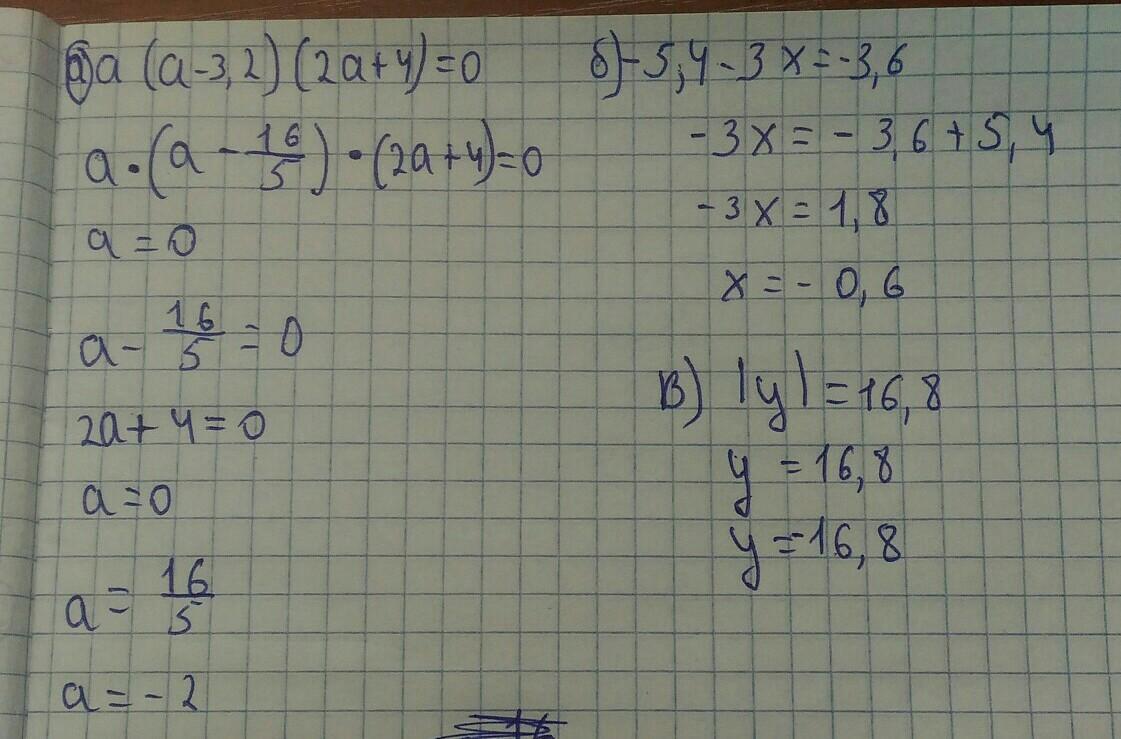 а) a (a-3,2) (2a+4)=0
a·(a - 16/5)·(2a+4)=0
a=0
a - 16/5 = 0
2a+4=0
a=0
a= 16/5
a=-2
б) -5,4-3x=-3,6
-3x=-3,6+5,4
-3x=1,8
x=-0,6
в) |y|=16,8
y=16,8
y=-16,8